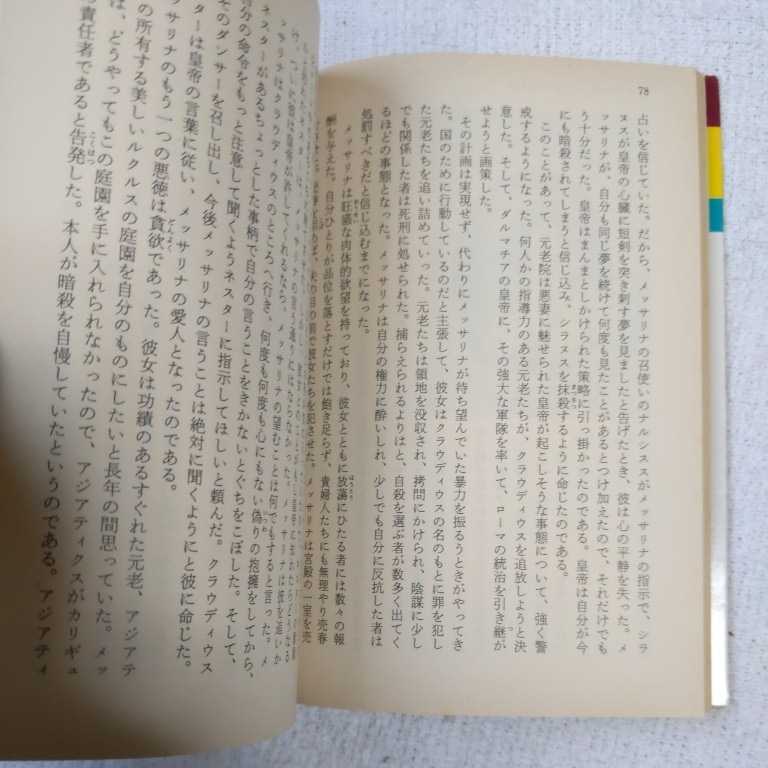 78
占いを信じていた。だから、メッサリナの召使いのナルシススがメッサリナの指示で、シラ
ヌスが皇帝の心臓に短剣を突き刺す夢を見ましたと告げたとき、彼は心の平静を失った。メ
ッサリナが、自分も同じ夢を続けて何度も見たことがあるとつけ加えたので、それだけでも
う十分だった。皇帝はまんまとしかけられた策略に引っ掛かったのである。皇帝は自分が今
にも暗殺されてしまうと信じ込み、シラヌスを抹殺するように命じたのである。
このことがあって、元老院は悪妻に魅せられた皇帝が起こしそうな事態について、強く警
戒するようになった。何人かの指導力のある元老たちが、クラウディウスを追放しようと決
意した。そして、ダルマチアの皇帝に、その強大な軍隊を率いて、ローマの統治を引き継が
せようと画策した。
その計画は実現せず、代わりにメッサリナが待ち望んでいた暴力を振るうときがやってき
た。国のために行動しているのだと主張して、彼女はクラウディウスの名のもとに罪を犯し
た元老たちを追い詰めていった。元老たちは領地を没収され、拷問にかけられ、陰謀に少し
でも関係した者は死刑に処せられた。捕らえられるよりはと、自殺を選ぶ者が数多く出てく
るほどの事態となった。メッサリナは自分の権力に酔いしれ、少しでも自分に反抗した者は
処罰すべきだと信じ込むまでになった。
メッサリナは旺盛な肉体的欲望を持っており、彼女とともに放蕩にひたる者には数々の報
酬を与えた。自分ひとりが品位を落とすだけでは飽き足らず、貴婦人たちにも無理やり売春
夫の目の前で彼女たちを犯させた。メッサリナは宮殿の一室を売
メッサリナはクラウディウスのところへ行き、何度も何度も心にもない偽りの抱擁をしてから、
ネスターがあるちょっとした事柄で自分の言うことをきかないとぐちをこぼした。そして、
自分の命令をもっと注意して聞くようネスターに指示してほしいと頼んだ。クラウディウス
そのダンサーを召し出し、今後メッサリナの言うことは絶対に聞くようにと彼に命じた。
スターは皇帝の言葉に従い、メッサリナの愛人となったのである。
ッサリナのもう一つの悪徳は貪欲であった。彼女は功績のあるすぐれた元老、アジアテ
の所有する美しいルクルスの庭園を自分のものにしたいと長年の間思っていた。メッ
は、どうやってもこの庭園を手に入れられなかったので、アジアティクスがカリギュ
責任者であると告発した。本人が暗殺を自慢していたというのである。アジアティ